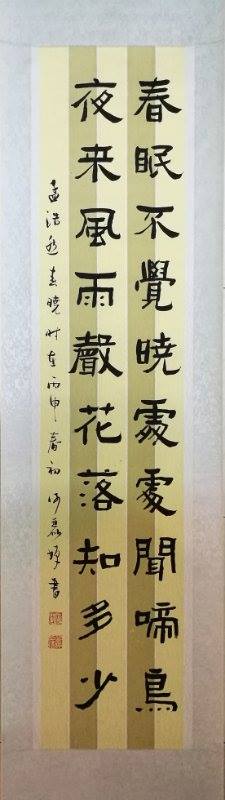 春眠不覺曉處處聞啼鳥
夜来風雨聲花落知多少
孟浩然春曉時在丙申春初